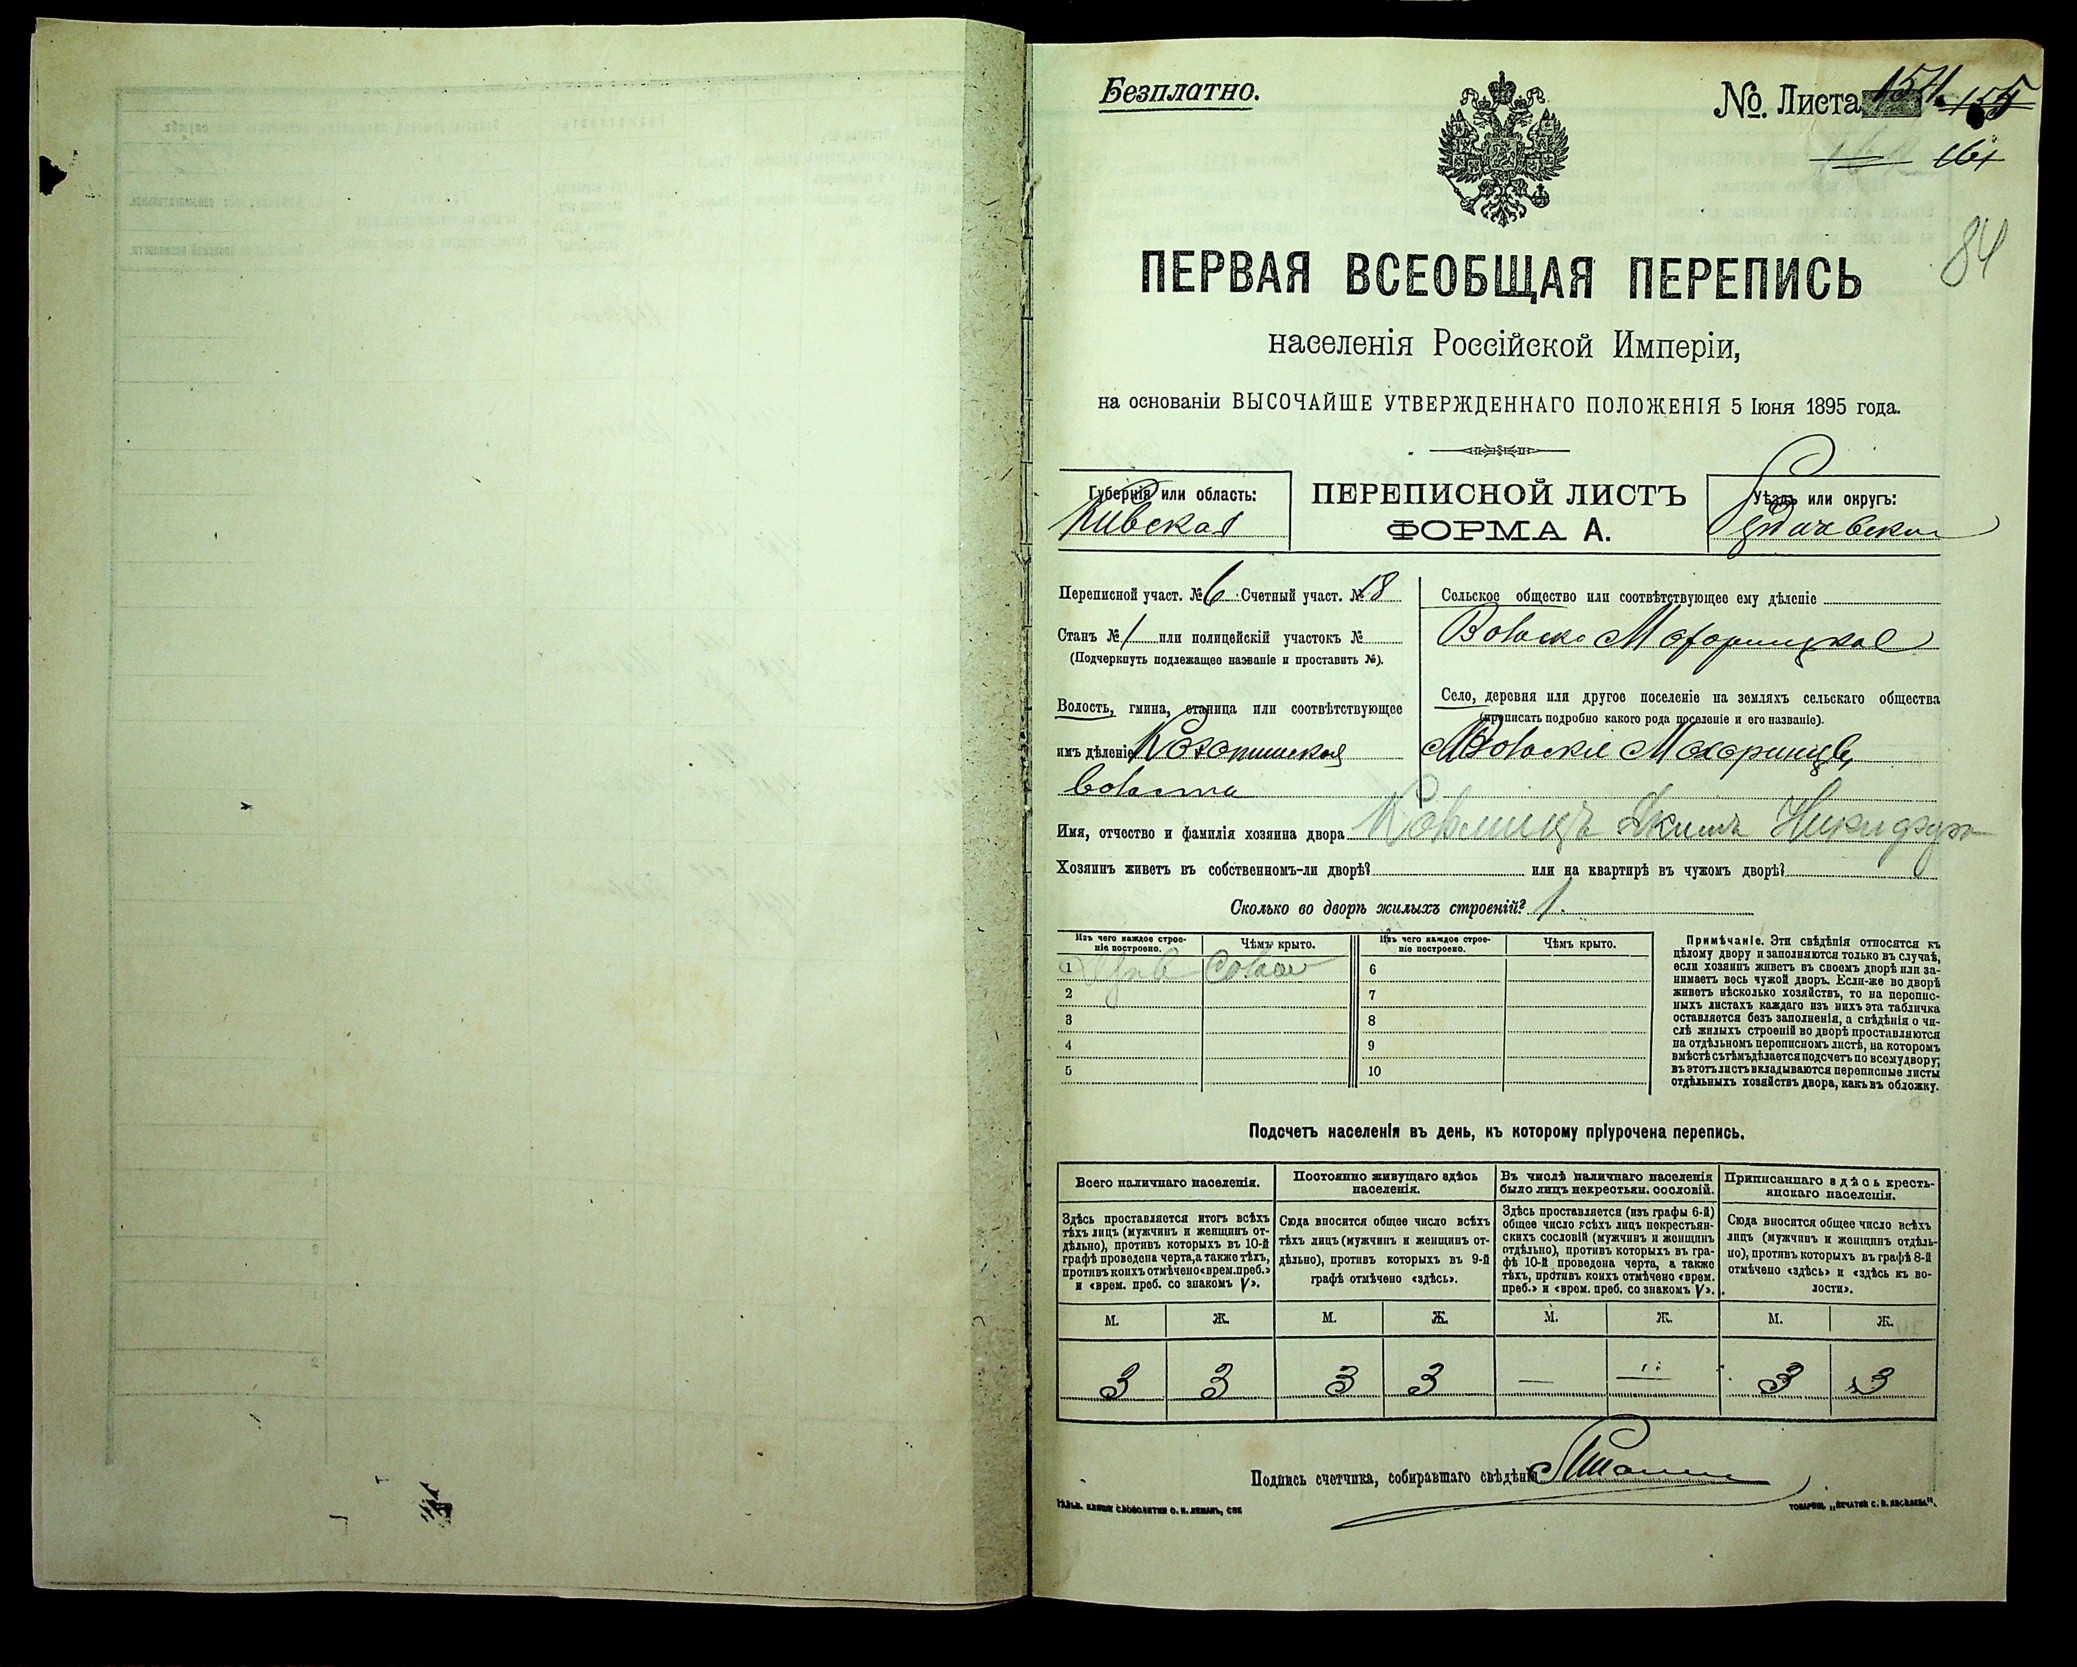 Безплатно.
№. Листа 154. 155
161
84
ПЕРВАЯ ВСЕОБЩАЯ ПЕРЕПИСЬ
населенія Россійской Имперіи,
на основаніи ВЫСОЧАЙШЕ УТВЕРЖДЕННАГО ПОЛОЖЕНІЯ 5 Іюня 1895 года.
Губернія или область:
Кивская
ПЕРЕПИСНОЙ ЛИСТЪ
ФОРМА А.
Уѣздъ или округъ:
Переписной участ. № 6 Счетный участ. № 18
Станъ № 1 или полицейскій участокъ №
(Подчеркнуть подлежащее названіе и проставить №).
Волость, гмина, станица или соотвѣтствующее
имъ дѣленіе
Сельское общество или соотвѣтствующее ему дѣленіе
Село, деревня или другое поселеніе на земляхъ сельскаго общества
(прописать подробно какого рода поселеніе и его названіе).
Имя, отчество и фамилія хозяина двора Якимъ
Хозяинъ живетъ въ собственномъ-ли дворѣ? или на квартирѣ въ чужомъ дворѣ?
Сколько во дворѣ жилыхъ строеній? 1.
Изъ чего каждое строе-
ніе построено.
Чѣмъ крыто.
Изъ чего каждое строе-
ніе построено.
Чѣмъ крыто.
1
6
2
7
3
8
4
9
5
10
Примѣчаніе. Эти свѣдѣнія относятся къ
цѣлому двору и заполняются только въ случаѣ,
если хозяинъ живетъ въ своемъ дворѣ или за-
нимаетъ весь чужой дворъ. Если-же во дворѣ
живетъ нѣсколько хозяйствъ, то на перепис-
ныхъ листахъ каждаго изъ нихъ эта табличка
оставляется безъ заполненія, а свѣдѣнія о чи-
слѣ жилыхъ строеній во дворѣ проставляются
на отдѣльномъ переписномъ листѣ, на которомъ
вмѣстѣ съ тѣмъ дѣлается подсчетъ по всему двору;
въ этотъ листъ вкладываются переписные листы
отдѣльныхъ хозяйствъ двора, какъ въ обложку.
Подсчетъ населенія въ день, къ которому пріурочена перепись.
Всего наличнаго населенія.
Постоянно живущаго здѣсь
населенія.
Въ числѣ наличнаго населенія
было лицъ некрестьян. сословій.
Приписаннаго здѣсь кресть-
янскаго населенія.
Здѣсь проставляется итогъ всѣхъ
тѣхъ лицъ (мужчинъ и женщинъ от-
дѣльно), противъ которыхъ въ 10-й
графѣ проведена черта, а также тѣхъ,
противъ коихъ отмѣчено «врем. преб.»
и «врем. преб. со знакомъ V».
Сюда вносится общее число всѣхъ
тѣхъ лицъ (мужчинъ и женщинъ от-
дѣльно), противъ которыхъ въ 9-й
графѣ отмѣчено «здѣсь».
Здѣсь проставляется (изъ графы 6-й)
общее число всѣхъ лицъ некрестьян-
скихъ сословій (мужчинъ и женщинъ
отдѣльно), противъ которыхъ въ гра-
фѣ 10-й проведена черта, а также
тѣхъ, противъ коихъ отмѣчено «врем.
преб.» и «врем. преб. со знакомъ V».
Сюда вносится общее число всѣхъ
лицъ (мужчинъ и женщинъ отдѣль-
но), противъ которыхъ въ графѣ 8-й
отмѣчено «здѣсь» и «здѣсь къ во-
лости».
М. Ж. М. Ж. М. Ж. М. Ж.
3 3 3 3 — — 3 3
Подпись счетчика, собиравшаго свѣдѣнія